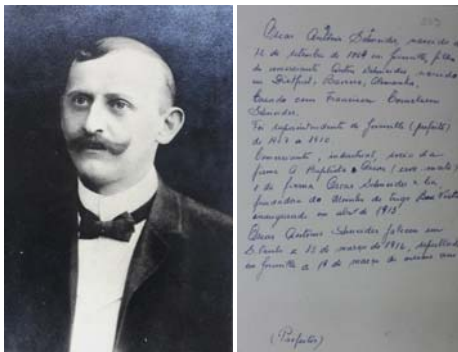 Oscar Antônio Schneider, nascido a
12 de setembro de 1864 em Joinville, filho
do comerciante Schneider nascido
em Baviera, Alemanha.
Casado com Francisca
Schneider.
Foi superintendente de Joinville (prefeito)
de a 1910
Comerciante, industrial, sócio da
firma A Baptista & Oscar (erva mate)
e da firma Oscar Schneider & Cia,
fundadora do Moinho de trigo Boa Vista
inaugurado em abril de 1913
Oscar Antônio Schneider faleceu em
a 15 de março de 1916, sepultado
em Joinville a 19 de março do mesmo ano
(Prefeitos)